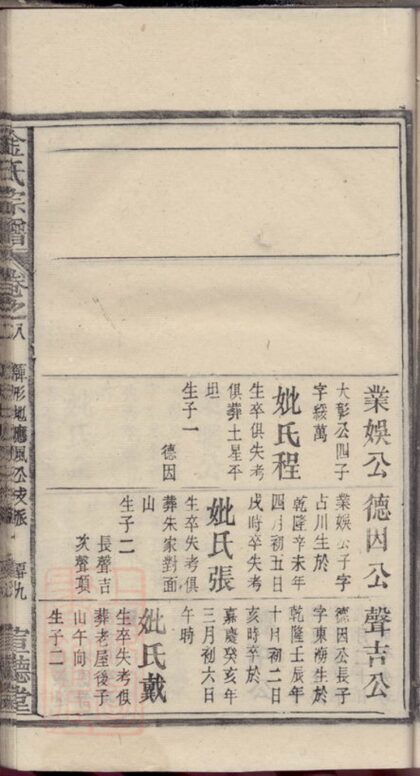 業娯公
大彰公四子
字綏萬
妣氏程
生卒俱失考
俱葬土星平
坦
生子一
德因
德因公
業娯公子字
占川生於
乾隆辛未年
四月初五日
戌時卒失考
妣氏張
生卒失考俱
葬朱家對面
山
生子二
長聲吉
次聲項
聲吉公
德因公長子
字東海生於
乾隆壬辰年
十月初二日
亥時卒於
嘉慶癸亥年
三月初六日
午時
妣氏戴
生卒失考俱
葬老屋後子
山午向
生子二
金氏宗譜
卷之
八